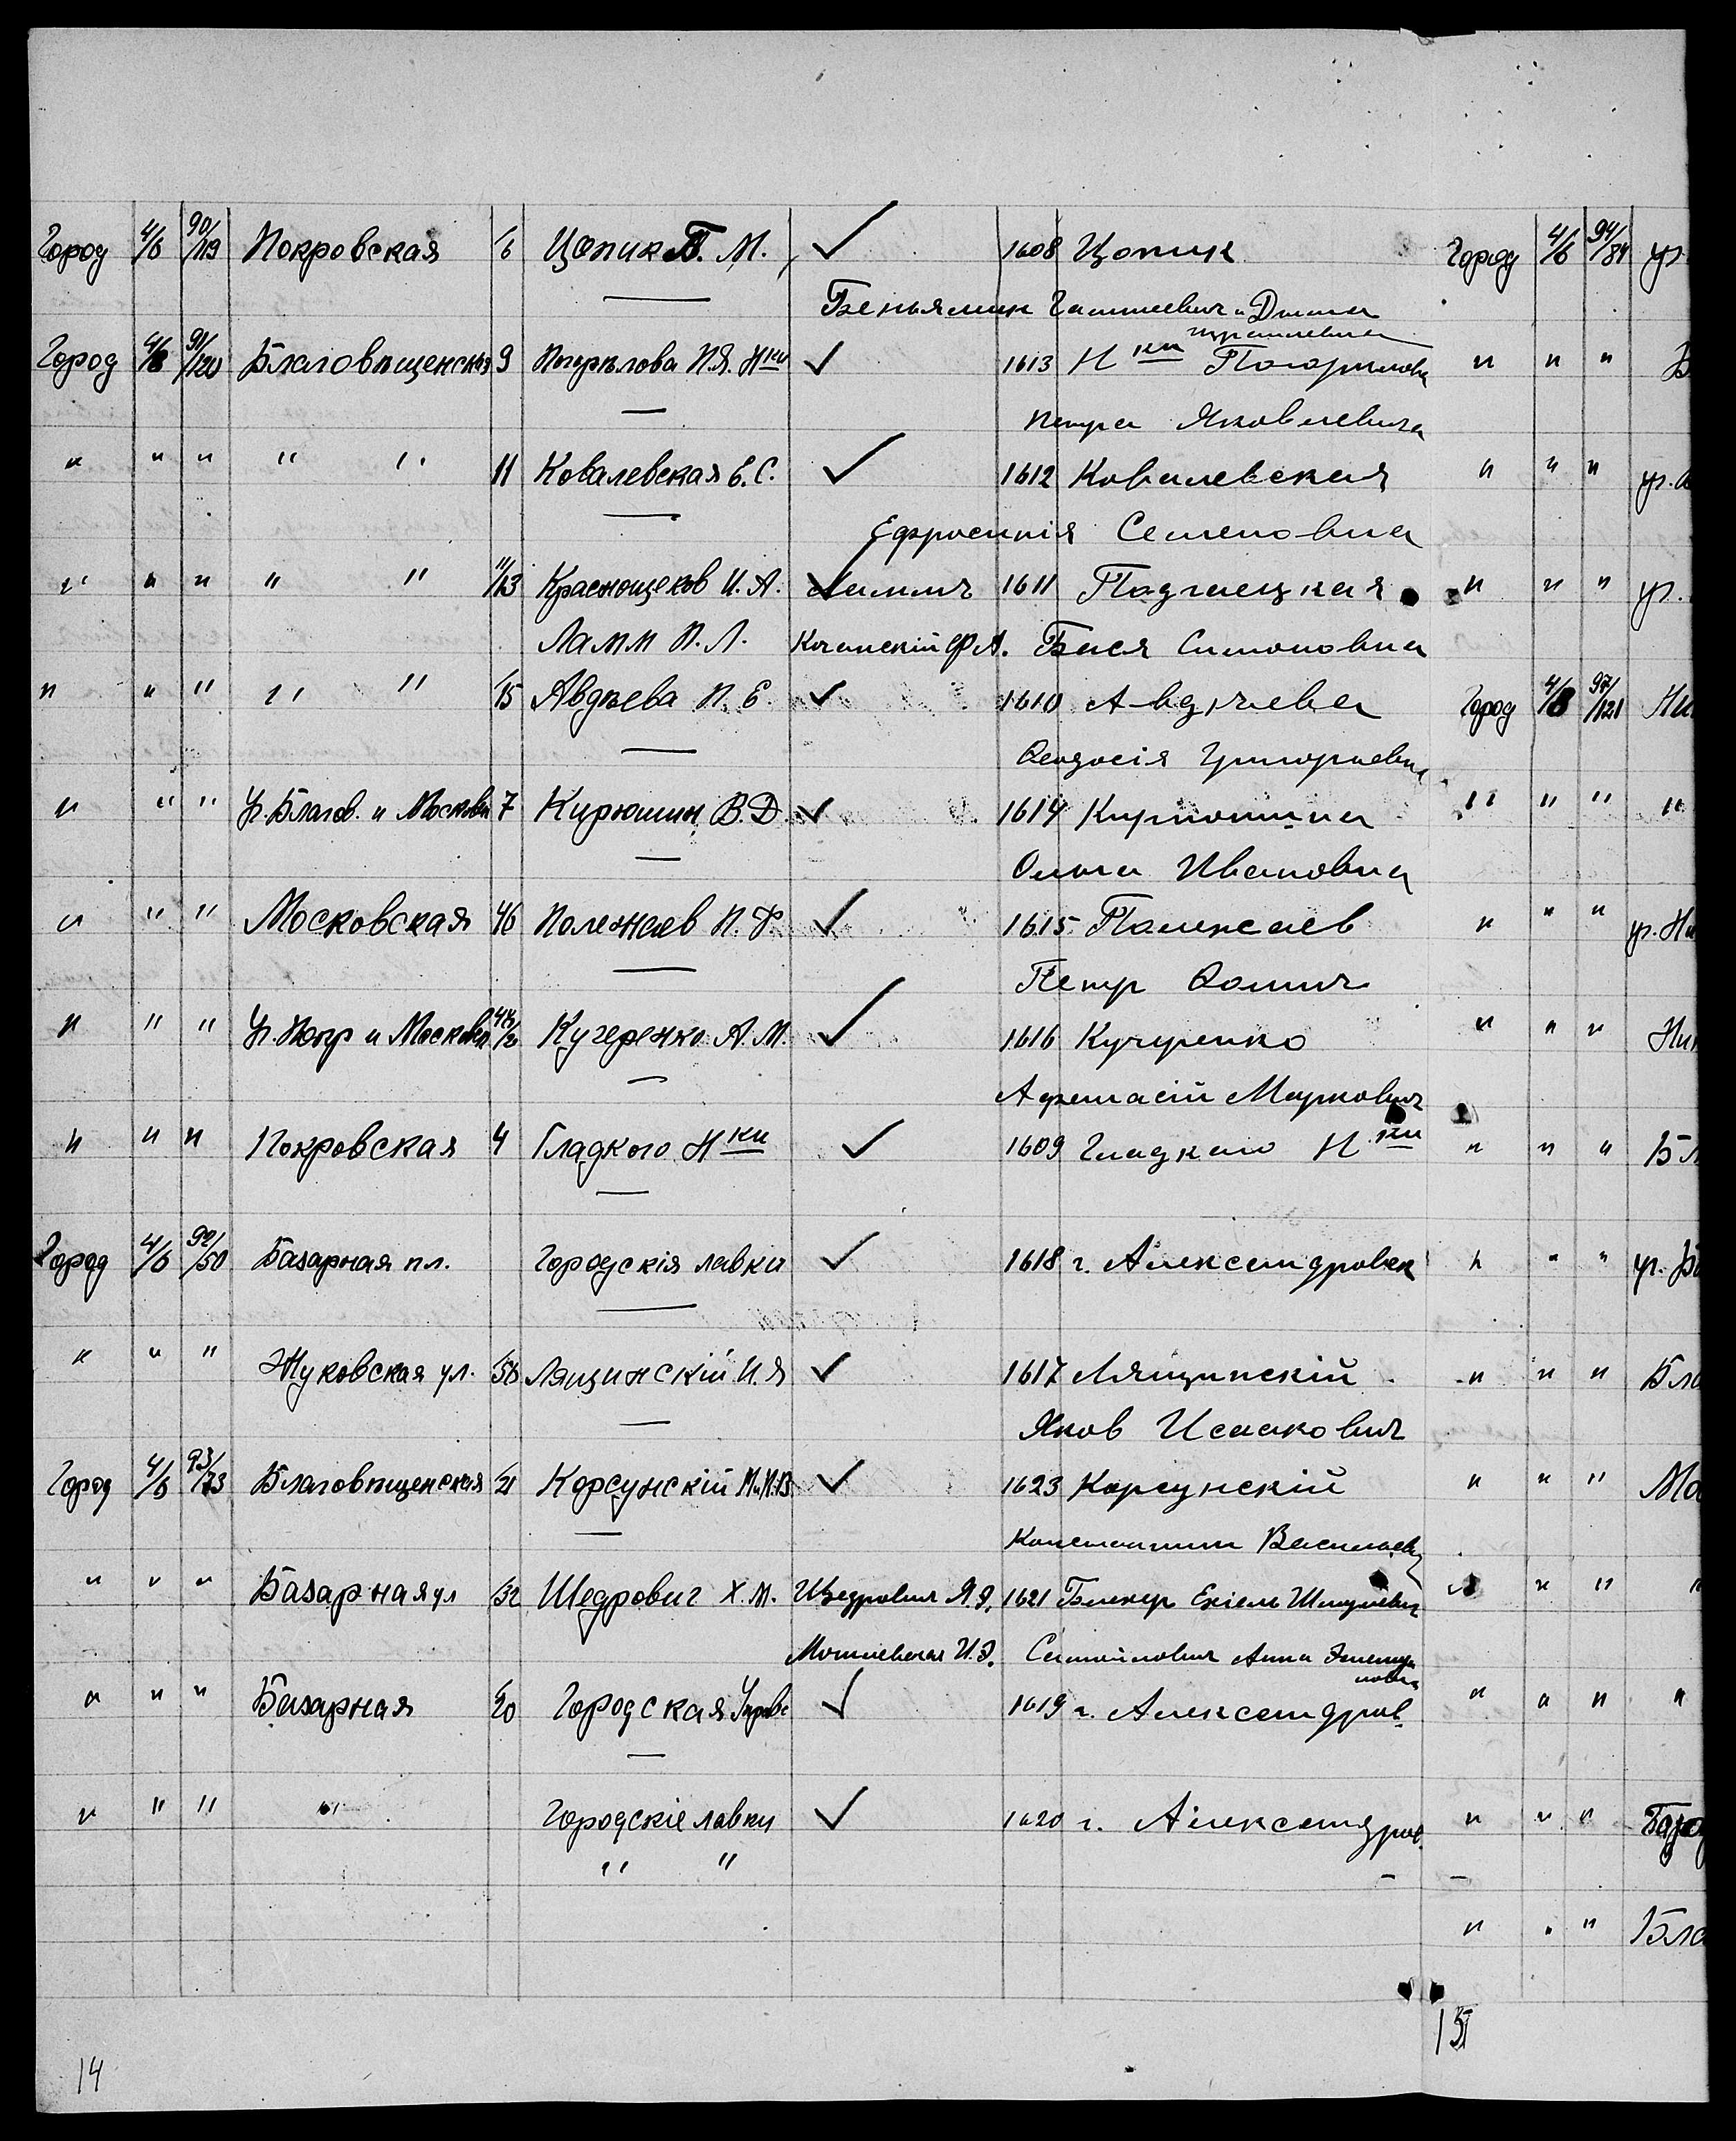 Город 4/6 90/119 Покровская /6 Цопик Б. М. ✓ 1608 Цопик Город 4/6 94/84 уг.
Беньямин и Дина
Израилевна
Город 4/8 91/120 Благовѣщенская 9 Погорѣлова П.Я. Нки ✓ 1613 Нки Погорѣлова " " " Б
Петра Яковлевича
" " " " " 11 Ковалевская Е. С. ✓ 1612 Ковалевская " " " уг.
Ефросинія Семеновна
" " " " " 11/13 Краснощеков И. А. ✓ 1611 Подгаецкая " " " уг.
Ламм П. Л. Качанскій Ф. А. Бася Симоновна
" " " " " /15 Авдѣева П. Е ✓ 1610 Авдѣева Город 4/8 97/121 Ни
Феодосія Григорьевна
" " " Уг. Благов. и Москов 7 Кирюшин В. Д. ✓ 1614 Кирюшина " " " "
Ольга Ивановна
" " " Московская 46 Полежаев П. Ф ✓ 1615 Полежаев " " " уг. Ни
Петр Фомич
" " " Уг. Покр и Москов 44/2 Кучеренко А. М. ✓ 1616 Кучеренко " " " Ник
Афанасій Маркович
" " " Покровская 4 Гладкого Нки ✓ 1609 Гладкаго Нки " " " Бл
Город 4/6 92/50 Базарная пл. Городскія лавки ✓ 1618 г. Александровск " " " уг. Ба
" " " Жуковская ул. /56 Лящинскій И. Я ✓ 1617 Лящинскій " " " Бла
Яков Исаакович
Город 4/6 93/73 Благовѣщенская /21 Корсунскій М.и.К.В. ✓ 1623 Корсунскій " " " Мо
Константин Васильев
" " " Базарная ул /32 Щедрович Х. М. Щедрович Я. Э. 1621 Блехер Ехіель Шмулевич " " " "
Могилевская И. Э. Самойлович Анна
" " " Базарная /20 Городская Управа ✓ 1619 г. Александров " " " "
" " " " Городскіе лавки ✓ 1620 г. Александров. " " " Базар
" "
" " " Бла
15
14